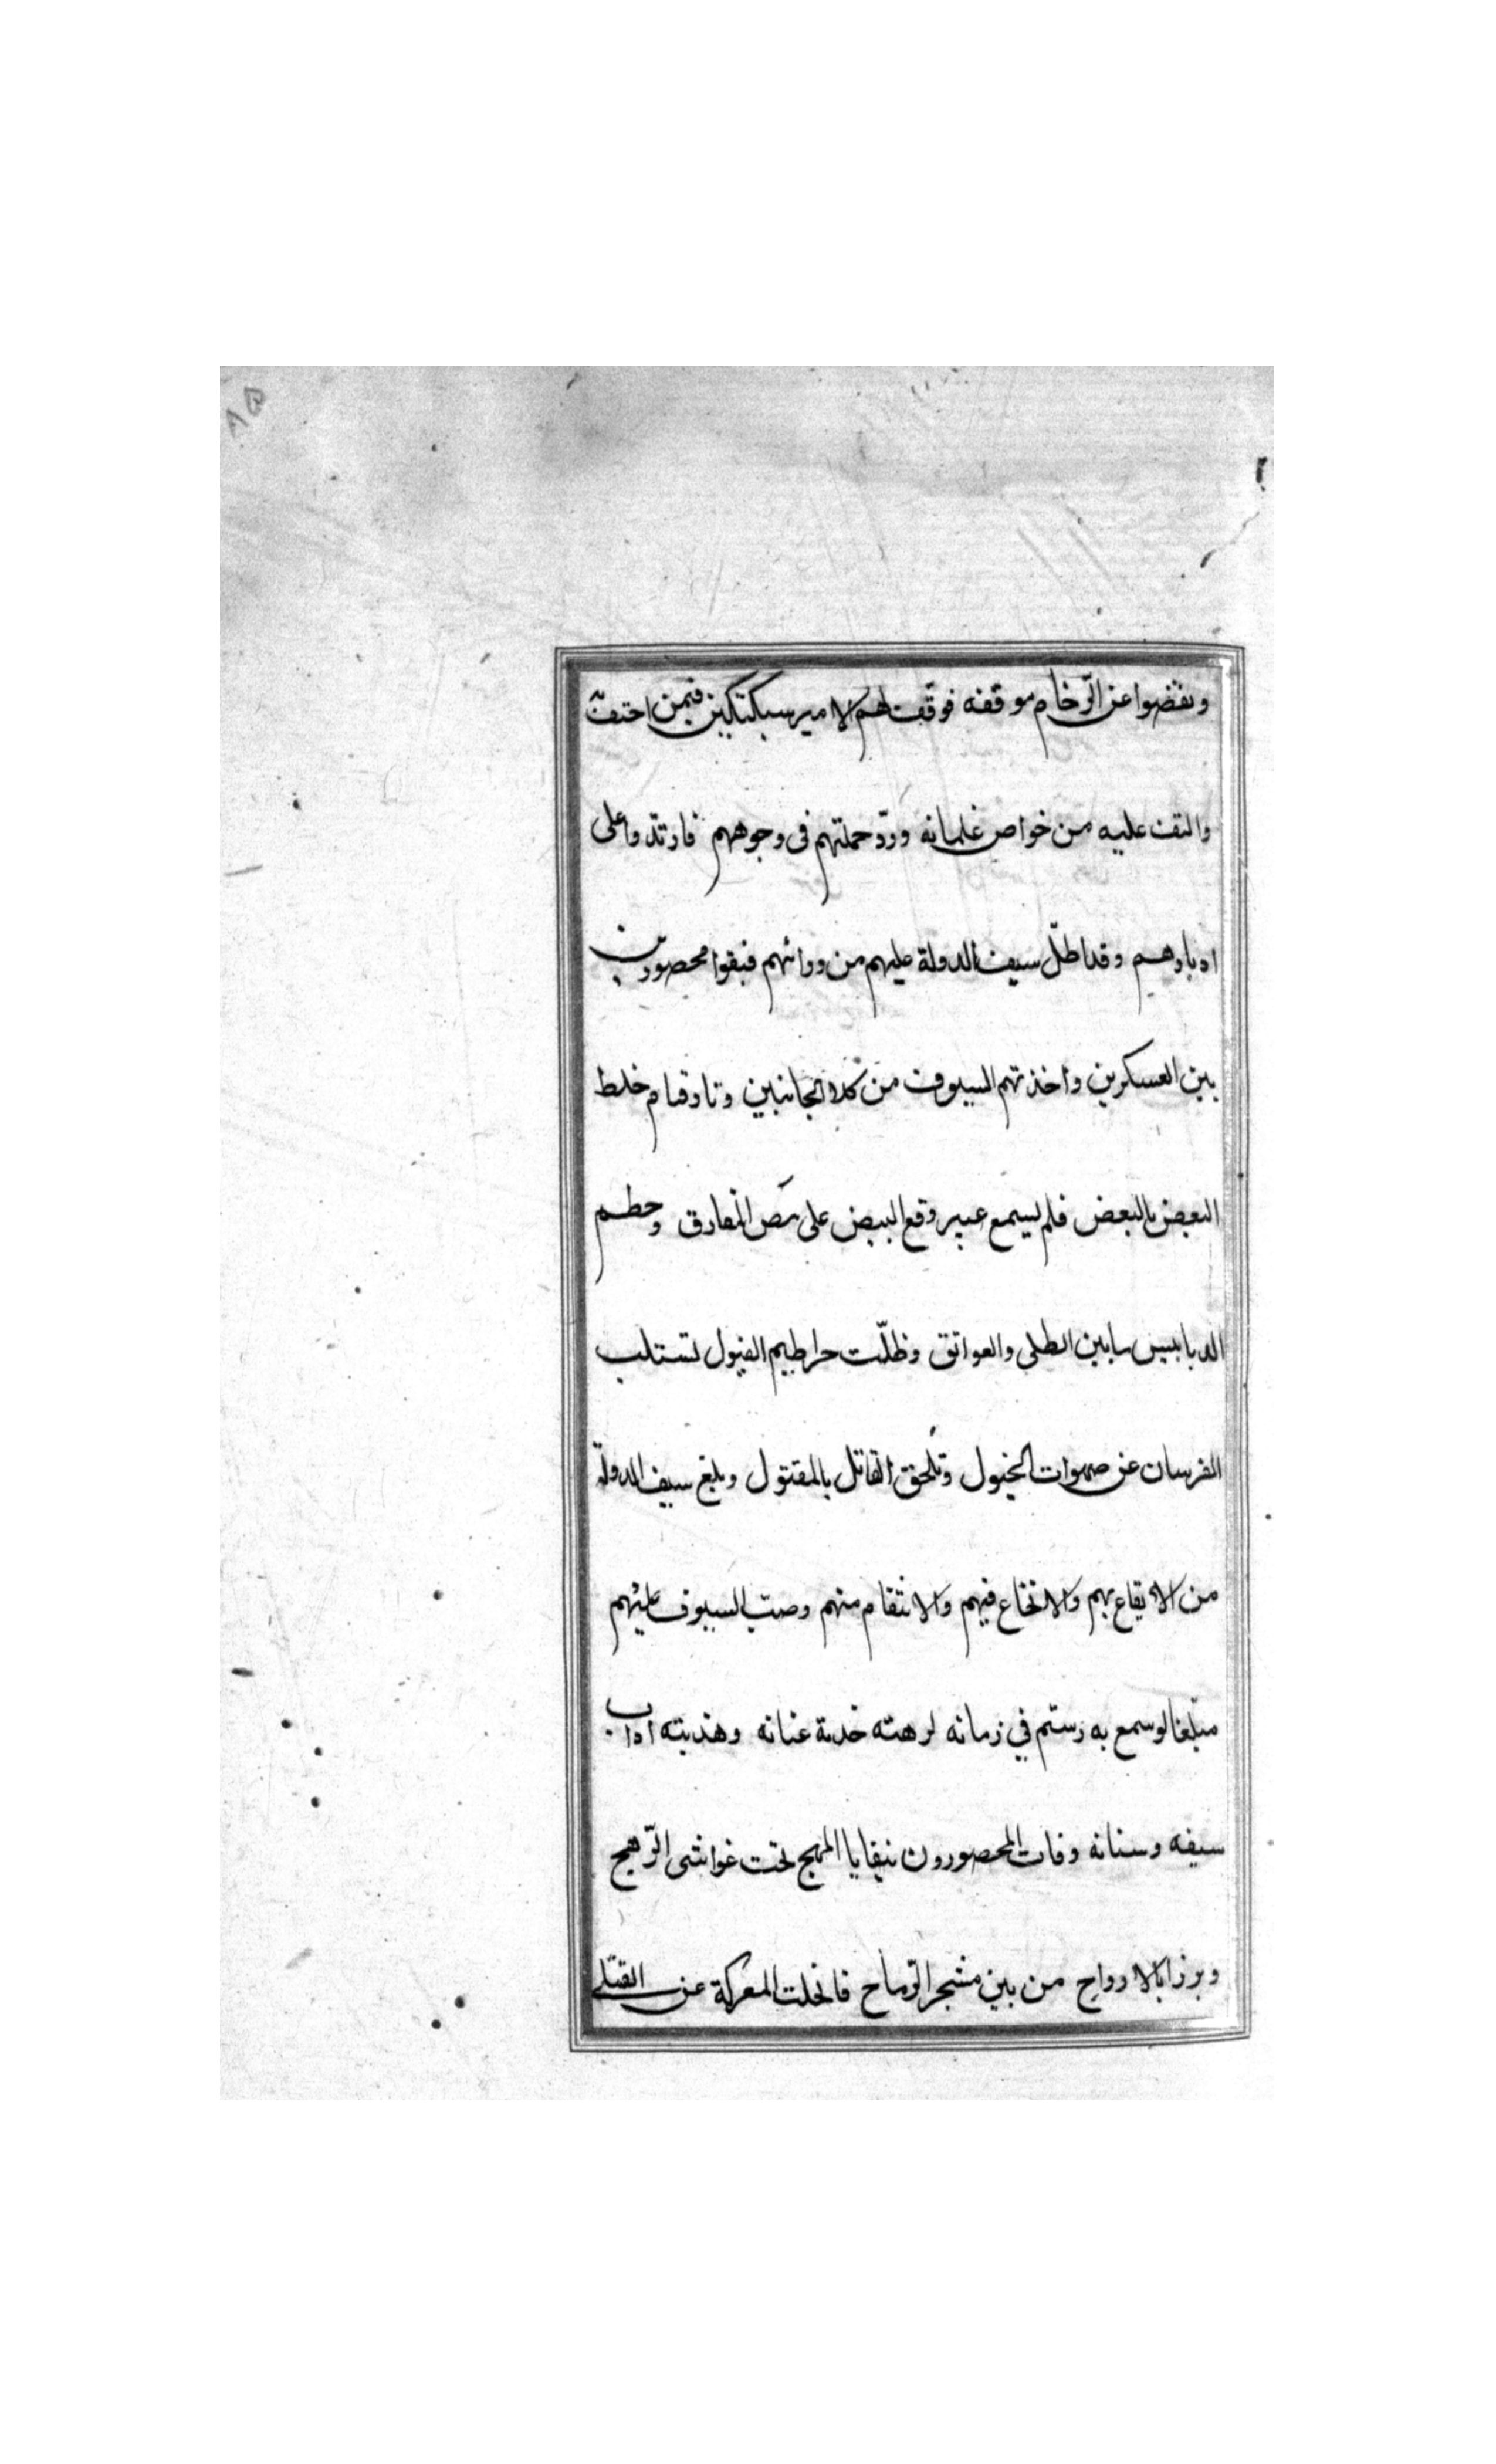 ونفضوا عن الزحام موقفه فوقف لهم الامير سبكتكين فيمن احتف
والتفت عليه من خواص غلمانه وردّ حملتهم فى وجوههم فارتدّوا على
ادبارهم وقد اطلّ سيف الدولة عليهم من ورائهم فبقوا محصورين
بين العسكرين واخذتهم السيوف من كلا الجانبين وثار قتام خلط
البعض بالبعض فلم يسمع غير وقع البيض على المفارق وحطم
الدبابيس مابين الطلى والعواتق وظلّت خراطيم الفيول تستلب
الفرسان عن صهوات الخيول وتلحق القاتل بالمقتول وبلغ سيف الدولة
من الايقاع بهم والاثخان فيهم والانتقام منهم وصبّ السيوف عليهم
مبلغا لو سمع به رستم في زمانه لرهنته خدمة عنانه وهذبته اداب
سيفه وسنانه وفات المحصورون ببقايا المهج تحت غواشى الرّهج
وبرزا بالارواح من بين مشجر الرّماح فانجلت المعركة عن القتلى